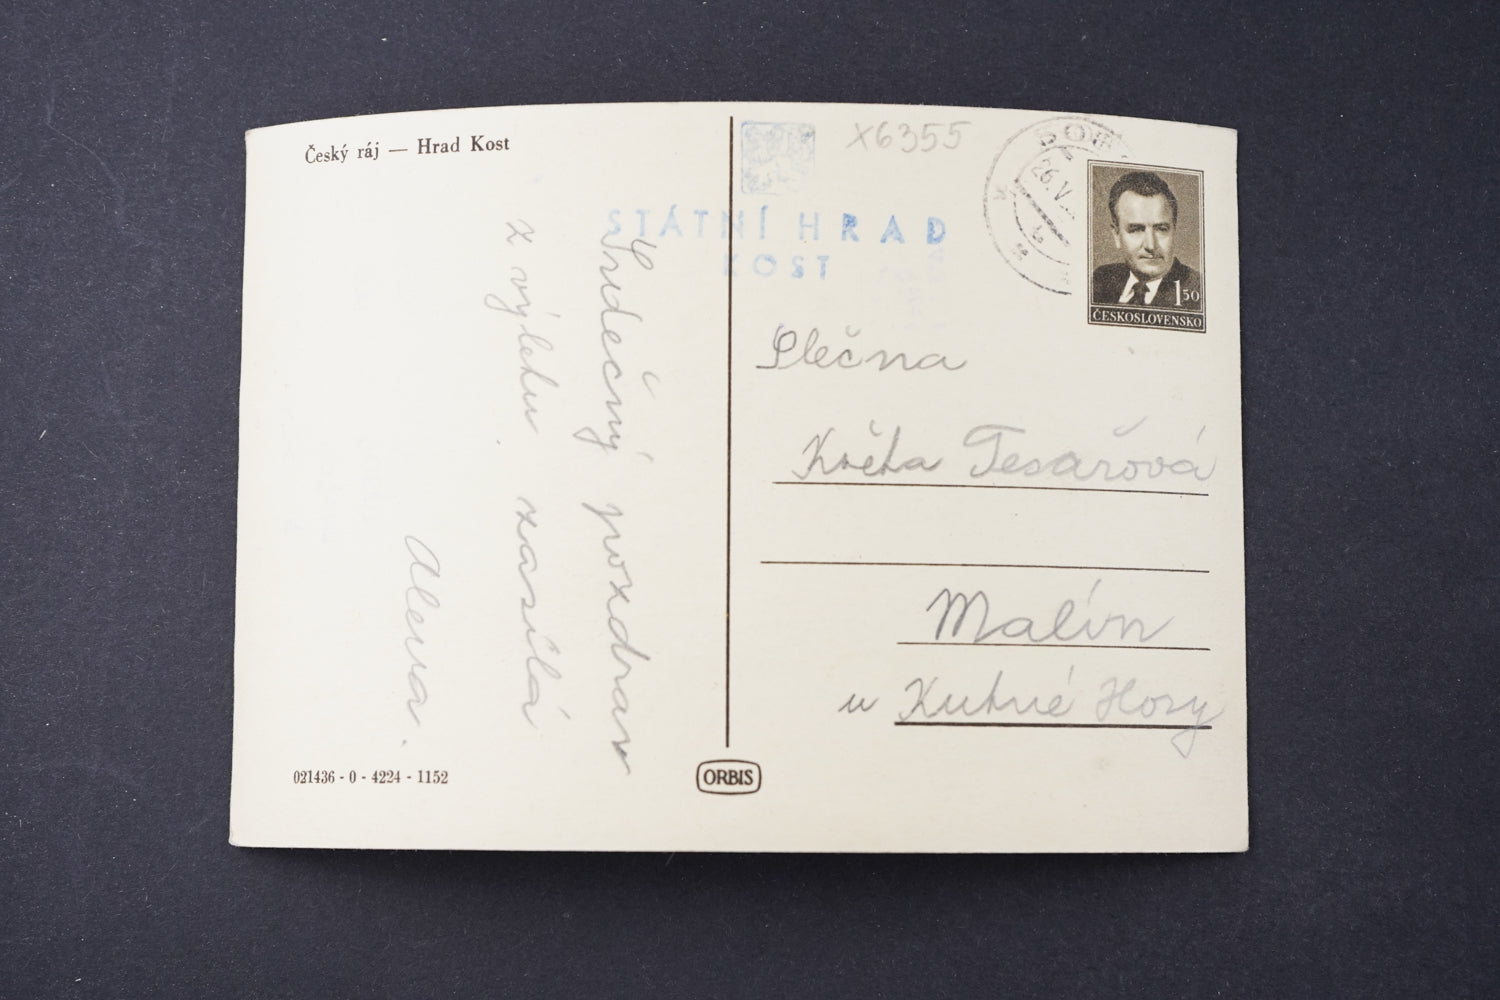 Český ráj — Hrad Kost
x6355
STÁTNÍ HRAD
KOST
26.V.
1 50
ČESKOSLOVENSKO
Srdečný pozdrav
z výletu zasílá
Alena.
Slečna
Květa Tesařová
Malín
u Kutné Hory
021436 - 0 - 4224 - 1152
ORBIS